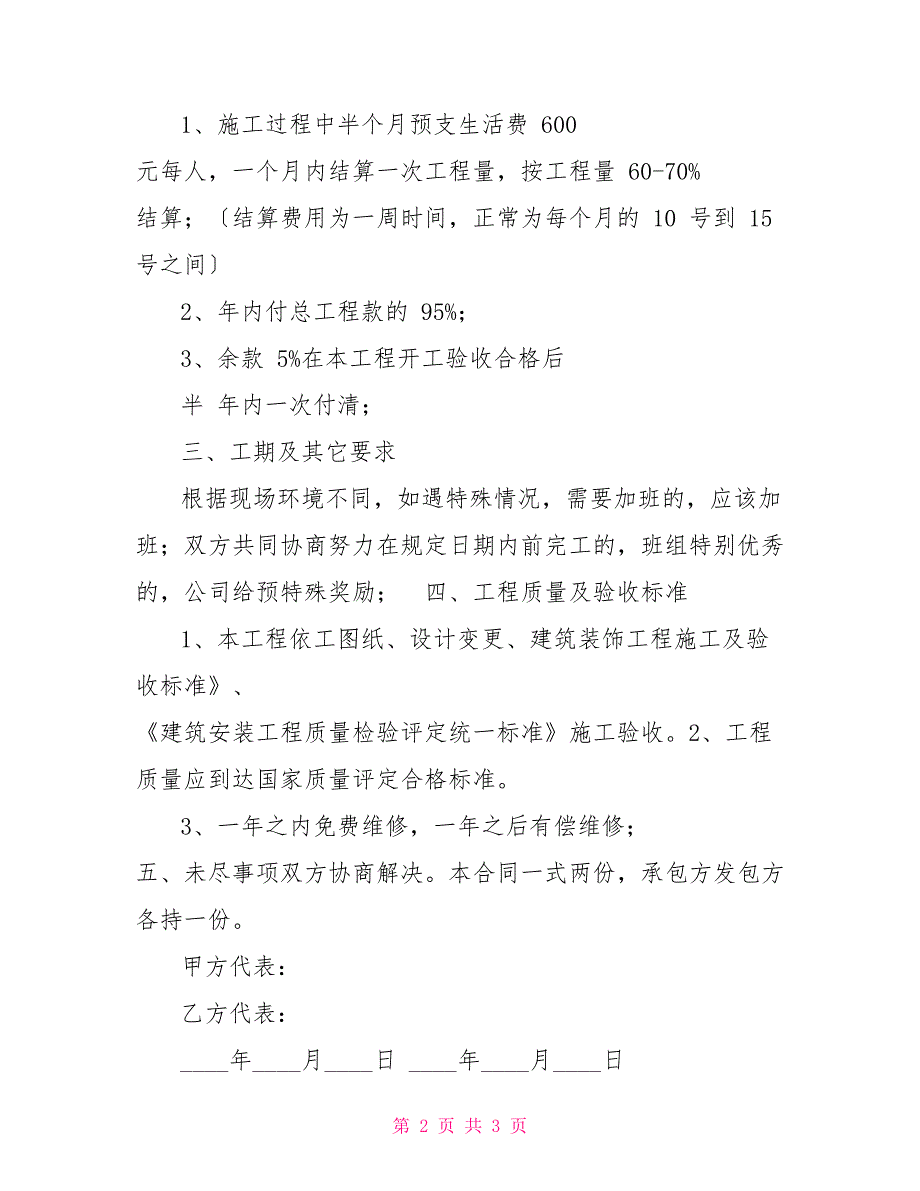 1、施工过程中半个月预支生活费 600
元每人，一个月内结算一次工程量，按工程量 60-70%
结算；〔结算费用为一周时间，正常为每个月的 10 号到 15
号之间〕
2、年内付总工程款的 95%；
3、余款 5%在本工程开工验收合格后
半 年内一次付清；
三、工期及其它要求
根据现场环境不同，如遇特殊情况，需要加班的，应该加
班；双方共同协商努力在规定日期内前完工的，班组特别优秀
的，公司给预特殊奖励； 四、工程质量及验收标准
1、本工程依工图纸、设计变更、建筑装饰工程施工及验
收标准》、
《建筑安装工程质量检验评定统一标准》施工验收。2、工程
质量应到达国家质量评定合格标准。
3、一年之内免费维修，一年之后有偿维修；
五、未尽事项双方协商解决。本合同一式两份，承包方发包方
各持一份。
甲方代表：
乙方代表：
____年____月____日 ____年____月____日
第 2 页 共 3 页